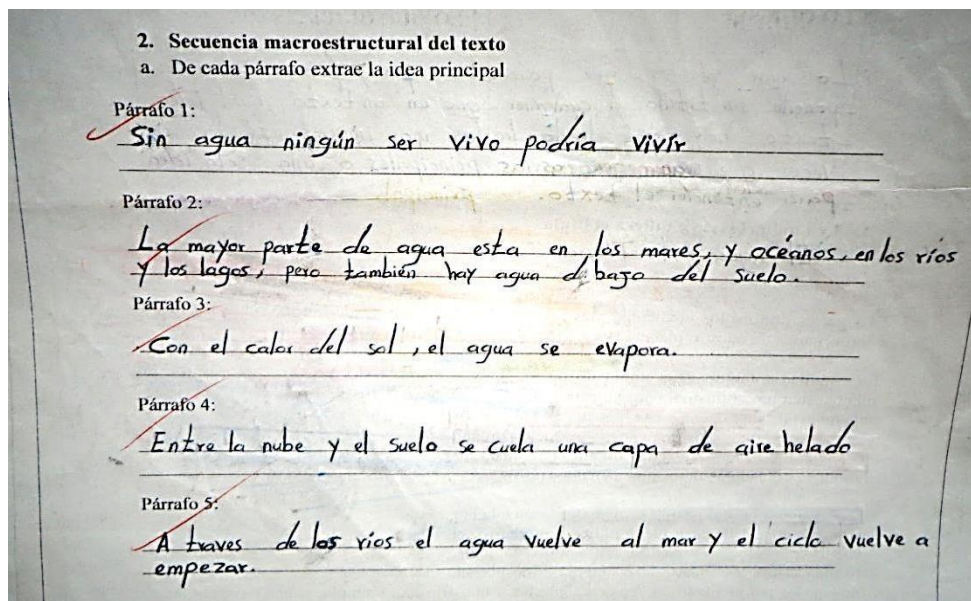 2. Secuencia macroestructural del texto
a. De cada párrafo extrae la idea principal
Párrafo 1:
Sin agua ningún ser vivo podría vivir
Párrafo 2:
La mayor parte de agua esta en los mares, y océanos, en los ríos
y los lagos, pero también hay agua d bajo del suelo.
Párrafo 3:
Con el calor del sol, el agua se evapora.
Párrafo 4:
Entre la nube y el suelo se cuela una capa de aire helado
Párrafo 5:
A traves de los rios el agua vuelve al mar y el ciclo vuelve a
empezar.